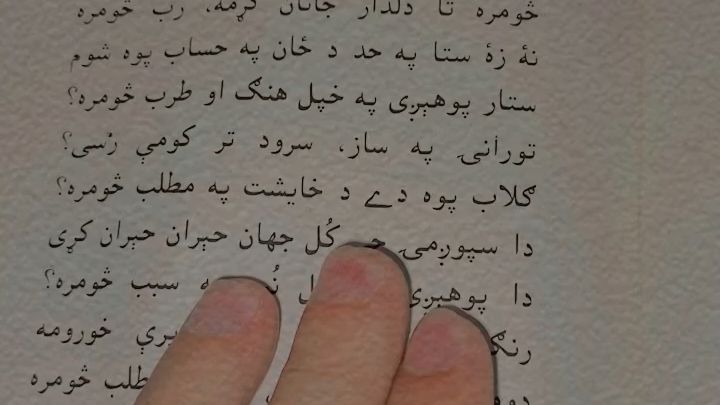 څومره تا دلدار جانان کړمه، رب څومره
نۀ زۀ ستا په حد د ځان په حساب پوه شوم
ستار پوهېږی په خپل هنګ او طرب څومره؟
تورانۍ په ساز، سرود تر کومې رْسی؟
ګلاب پوه دے د خایشت په مطلب څومره؟
دا سپوږمۍ چې کُل جهان حېران حېران کړی
دا پوهېږی سبب څومره؟
خورومه
څومره